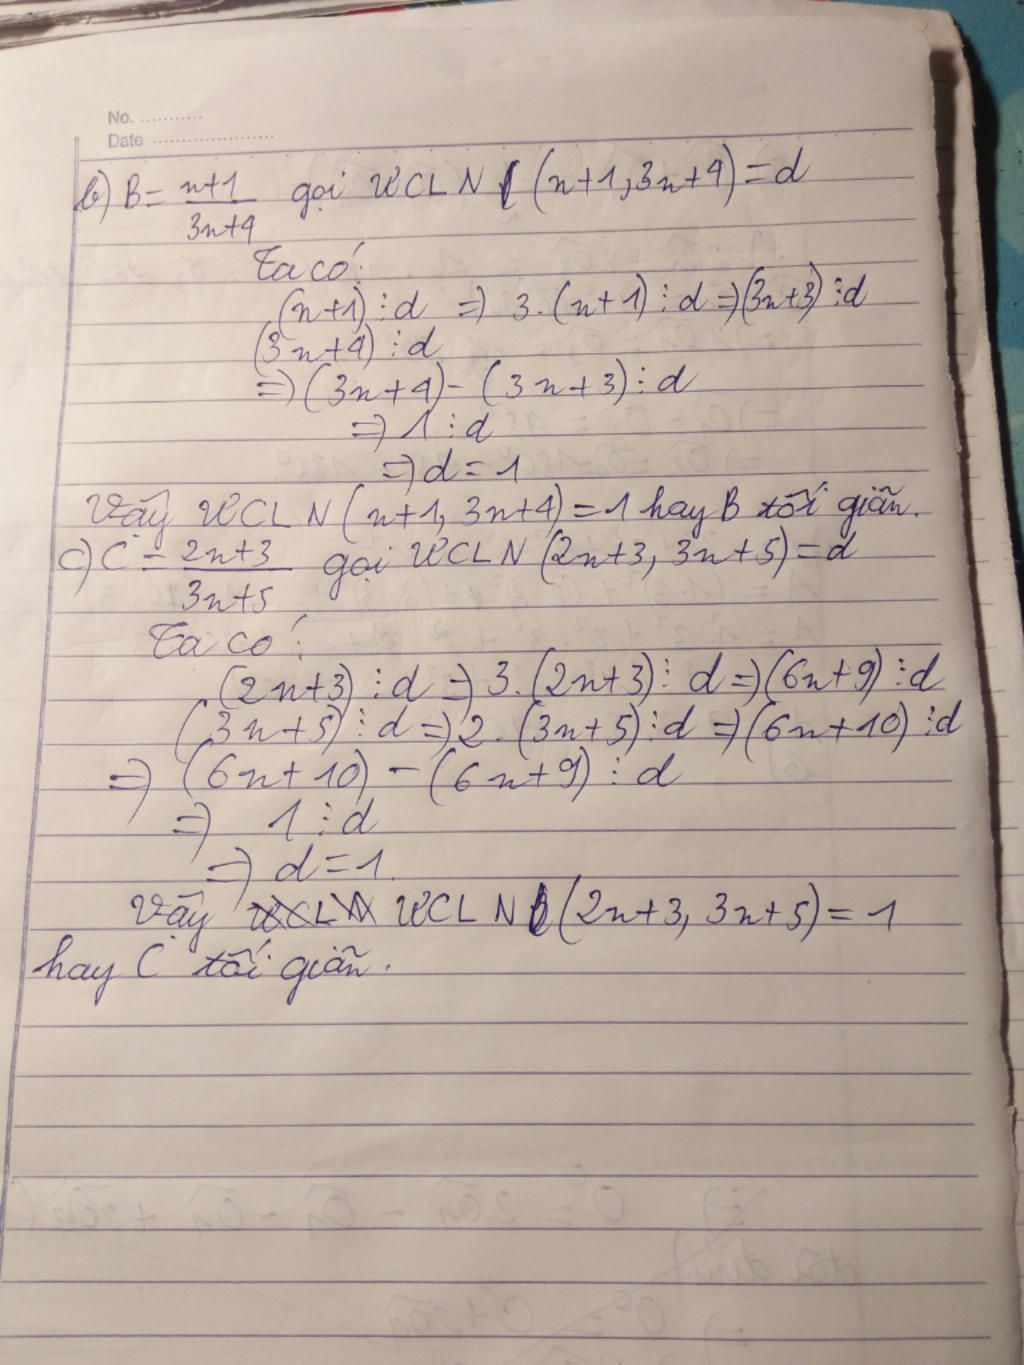 No. ...........
Date ......................
b) B = n+1/3n+4 gọi ƯCLN (n+1, 3n+4) = d
Ta có:
(n+1) ⋮ d => 3.(n+1) ⋮ d => (3n+3) ⋮ d
(3n+4) ⋮ d
=> (3n+4) - (3n+3) ⋮ d
=> 1 ⋮ d
=> d = 1
Vậy ƯCLN (n+1, 3n+4) = 1 hay B tối giãn.
c) C = 2n+3/3n+5 gọi ƯCLN (2n+3, 3n+5) = d
Ta có:
(2n+3) ⋮ d => 3.(2n+3) ⋮ d => (6n+9) ⋮ d
(3n+5) ⋮ d => 2.(3n+5) ⋮ d => (6n+10) ⋮ d
=> (6n+10) - (6n+9) ⋮ d
=> 1 ⋮ d
=> d = 1.
Vậy ƯCLN ƯCLN (2n+3, 3n+5) = 1
hay C tối giãn.